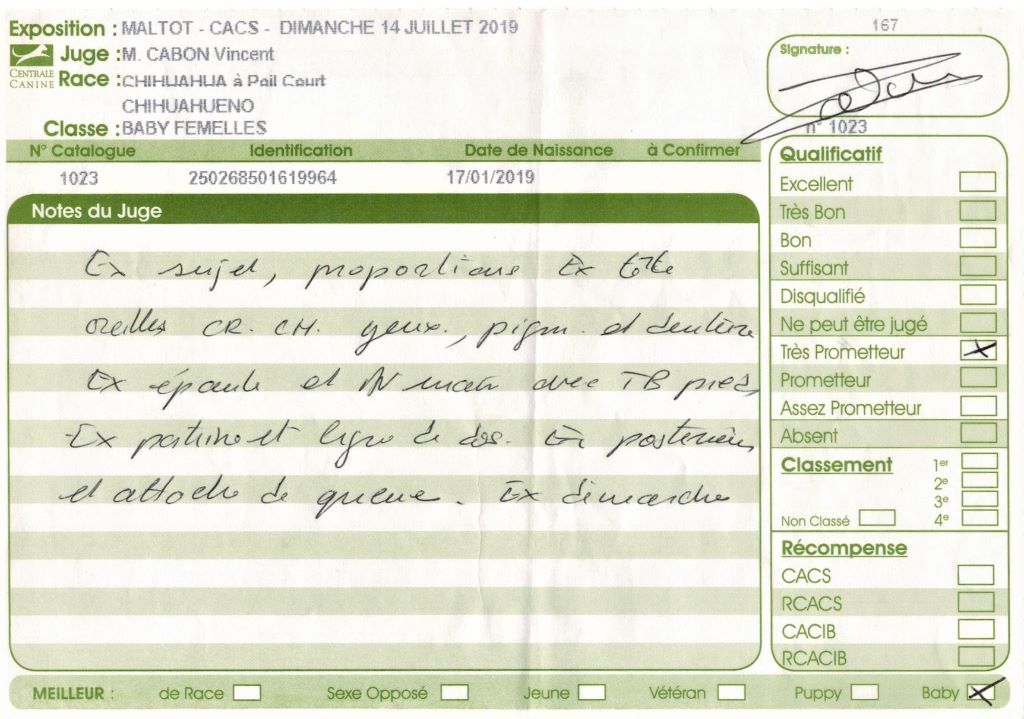 Exposition : MALTOT - CACS - DIMANCHE 14 JUILLET 2019
167
CENTRALE CANINE
Juge : M. CABON Vincent
Signature :
Race : CHIHUAHUA à Poil Court
CHIHUAHUENO
Classe : BABY FEMELLES
n° 1023
N° Catalogue Identification Date de Naissance à Confirmer
1023 250268501619964 17/01/2019
Notes du Juge
Ex sujet, proportions Ex tête
oreilles CR. CH. yeux, pigm. et denture
Ex épaule et avec TB pieds
Ex poitrine et ligne de dos. Ex postérieurs
et attache de queue. Ex démarche
Qualificatif
Excellent
Très Bon
Bon
Suffisant
Disqualifié
Ne peut être jugé
Très Prometteur X
Prometteur
Assez Prometteur
Absent
Classement 1er
2e
3e
Non Classé 4e
Récompense
CACS
RCACS
CACIB
RCACIB
MEILLEUR : de Race Sexe Opposé Jeune Vétéran Puppy Baby X